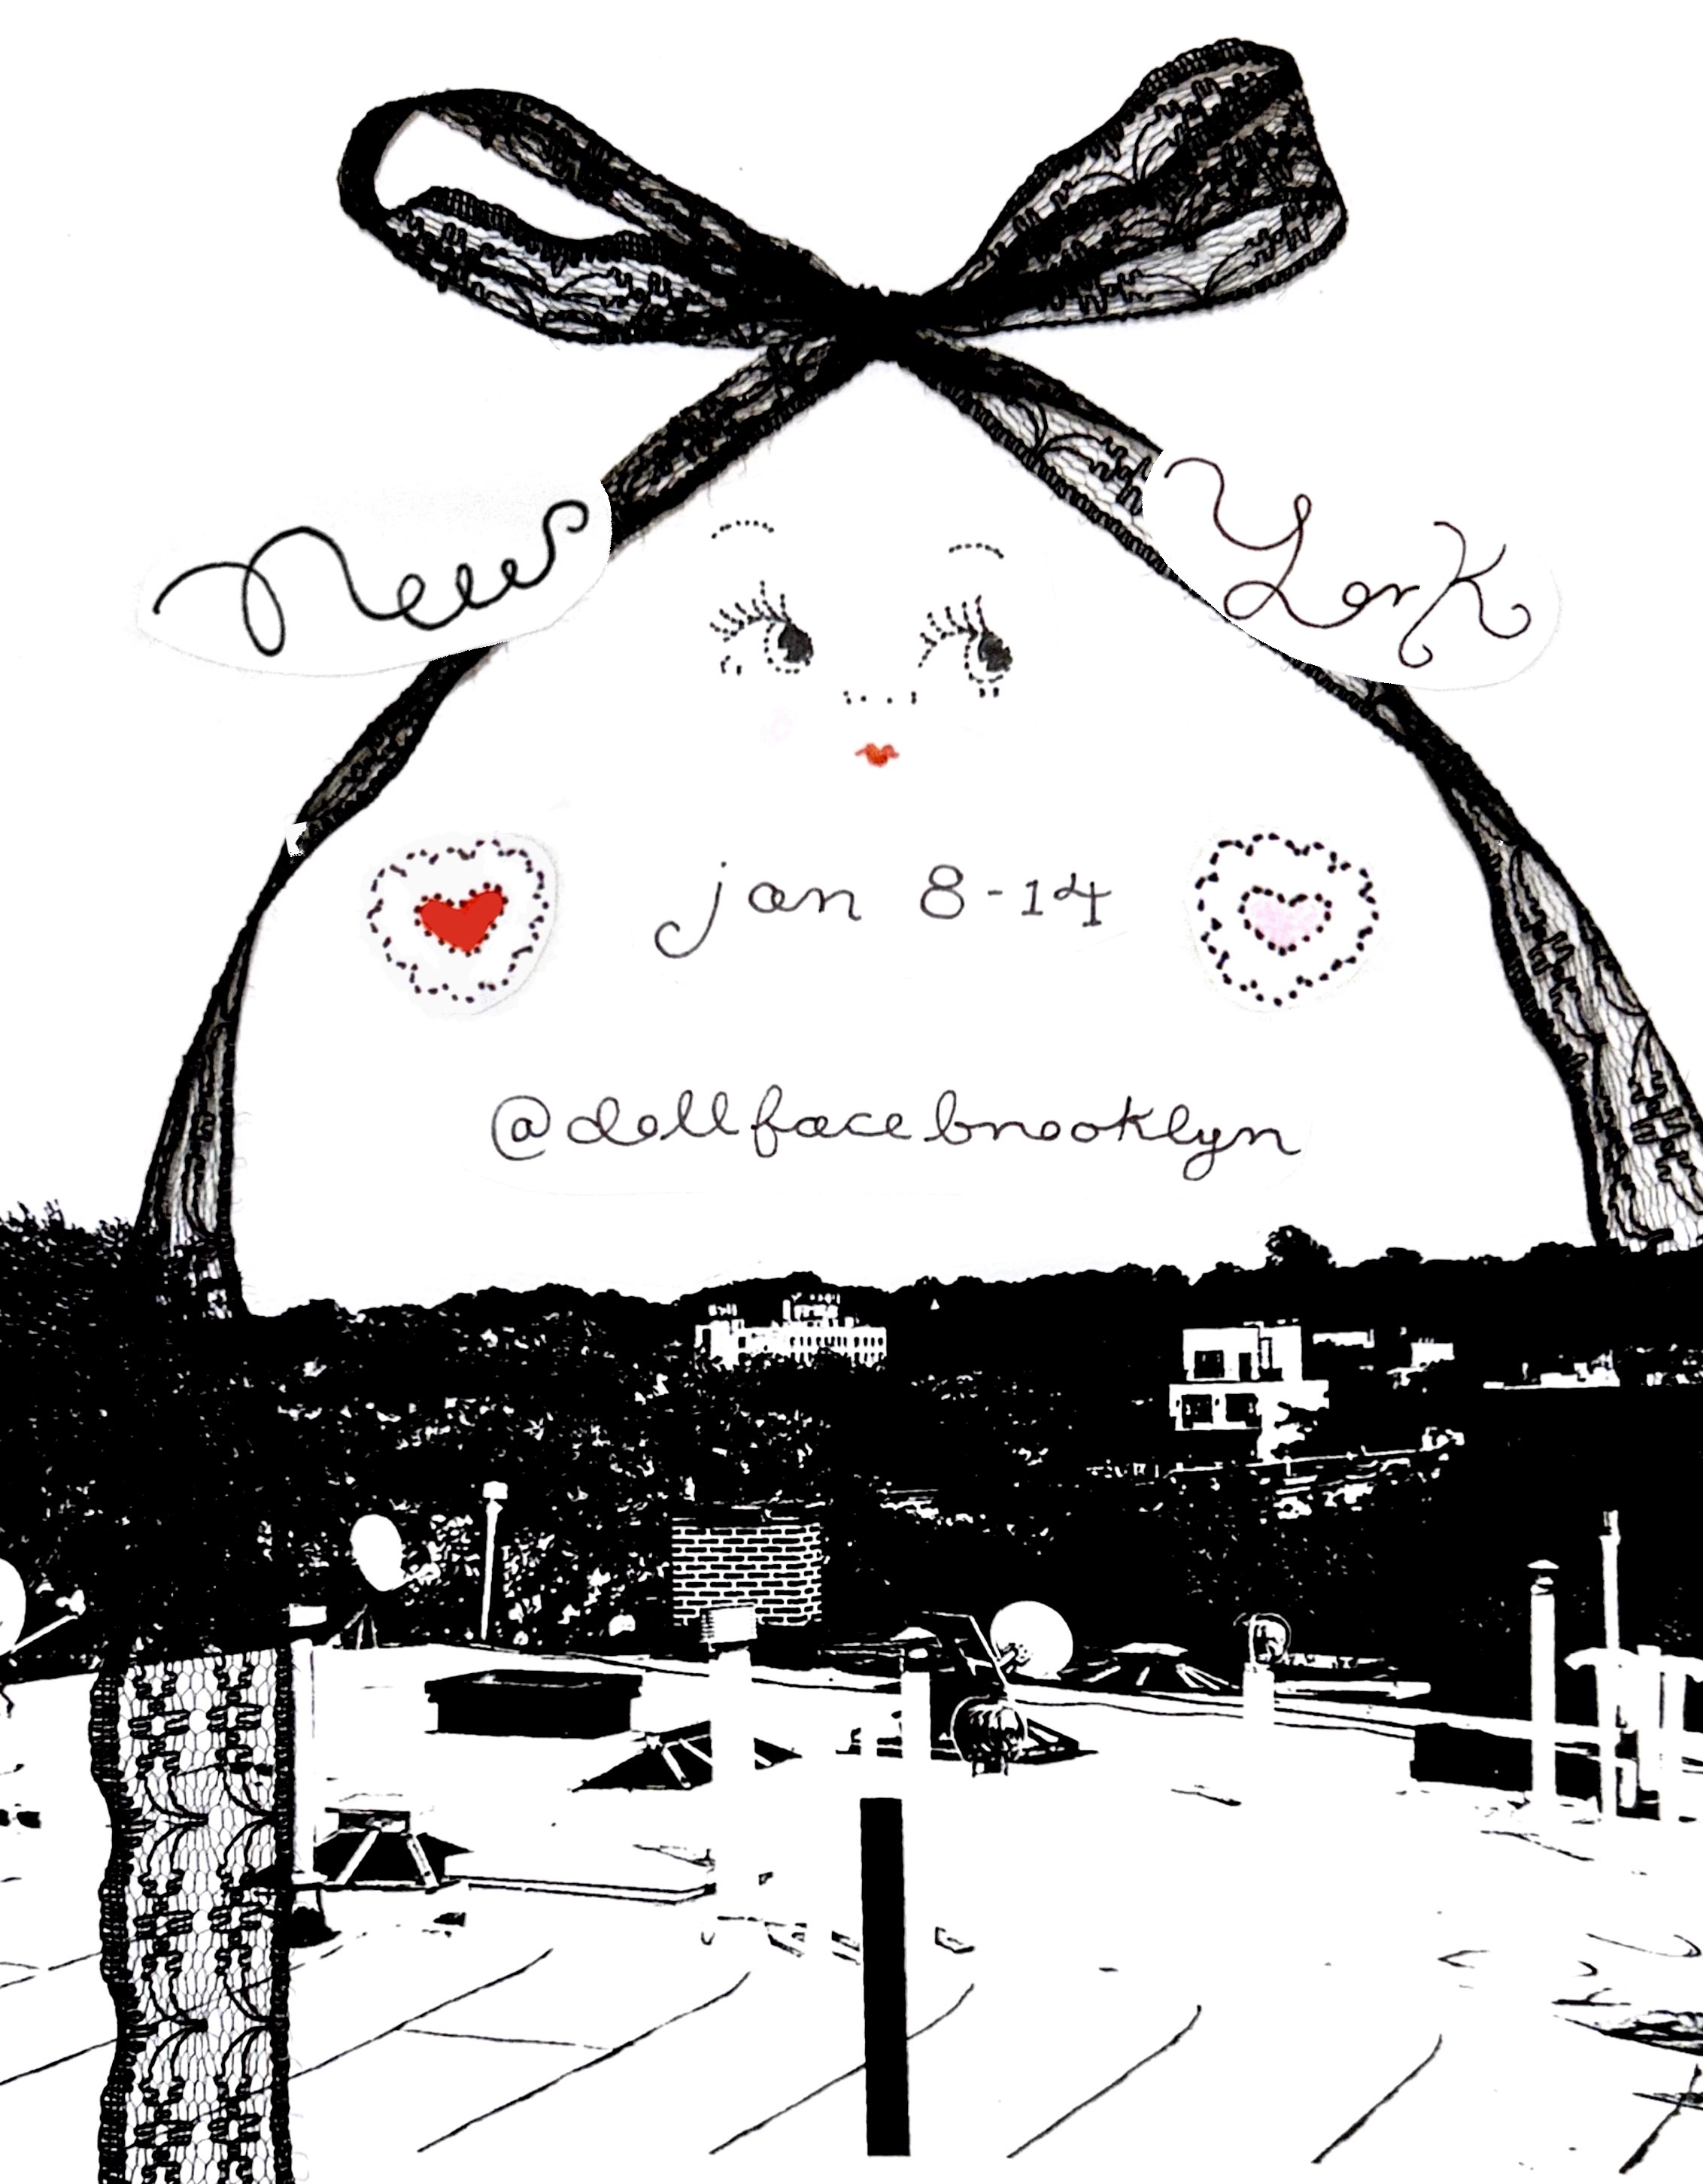 New York
jan 8-14
@dollfacebrooklyn